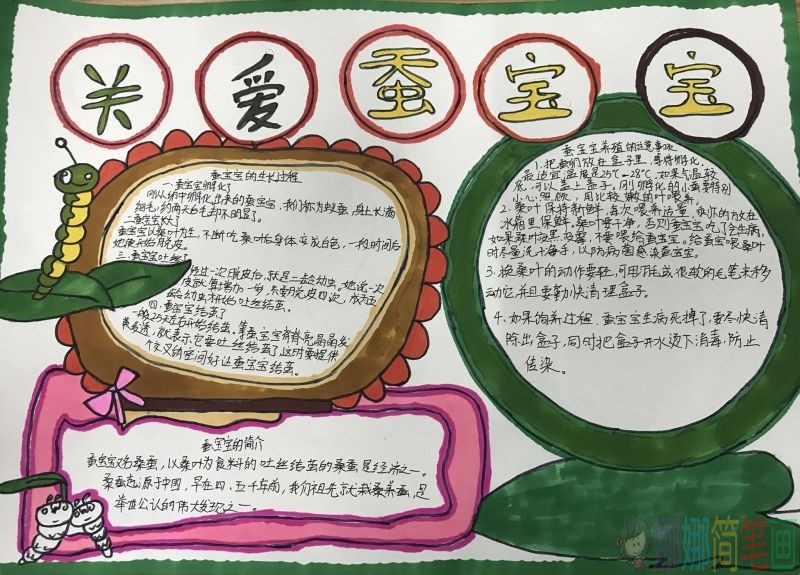 关爱蚕宝宝
蚕宝宝的生长过程
一.蚕宝宝孵化了
刚从卵中孵化出来的蚕宝宝,我们称为蚁蚕,身上长满
细毛,约两天白毛却不明显了。
二.蚕宝宝长大了
蚕宝宝以桑叶为生,不断吃桑叶后身体变成白色,一段时间后
它便开始脱皮。
三.蚕宝宝吐丝
经过一次脱皮后,就是二龄幼虫。她脱一次
皮就算增加一岁,共要脱皮四次,成为五
龄幼虫才开始吐丝结茧。
四.蚕宝宝结茧了
一般25天左右开始结茧。看蚕宝宝脊背亮晶晶发
黄透,就表示它要吐丝结茧了,这时要提供
空间好让蚕宝宝结茧。
蚕宝宝养殖的注意事项
1.把蚕卵放在盒子里,等待孵化,
最适宜温度是25℃-28℃,如果气温较
底,可以盖上盒子,刚孵化的小蚕要特别
小心照顾,用比较嫩的叶喂养。
2.桑叶保持新鲜,每次喂养适量,剩余的放在
冰箱里保鲜,桑叶要干净,否则蚕宝宝吃了会生病,
如果桑叶发黑,发霉,不要喂给蚕宝宝。给蚕宝喂桑叶
时尽量洗干净手,以防病菌感染蚕宝宝。
3.换桑叶的动作要轻,可用羽毛或很软的毛笔来移
动它并且要勤快清理盒子。
4.如果饲养过程,蚕宝宝生病死掉了,要尽快清
除出盒子,同时把盒子开水烫下消毒,防止
传染。
蚕宝宝的简介
蚕宝宝又名桑蚕,以桑叶为食料的吐丝结茧的桑蚕是经济之一。
桑蚕起源于中国,早在四、五千年前,我们祖先就栽桑养蚕,是
举世公认的伟大发现之一。
娜娜简笔画